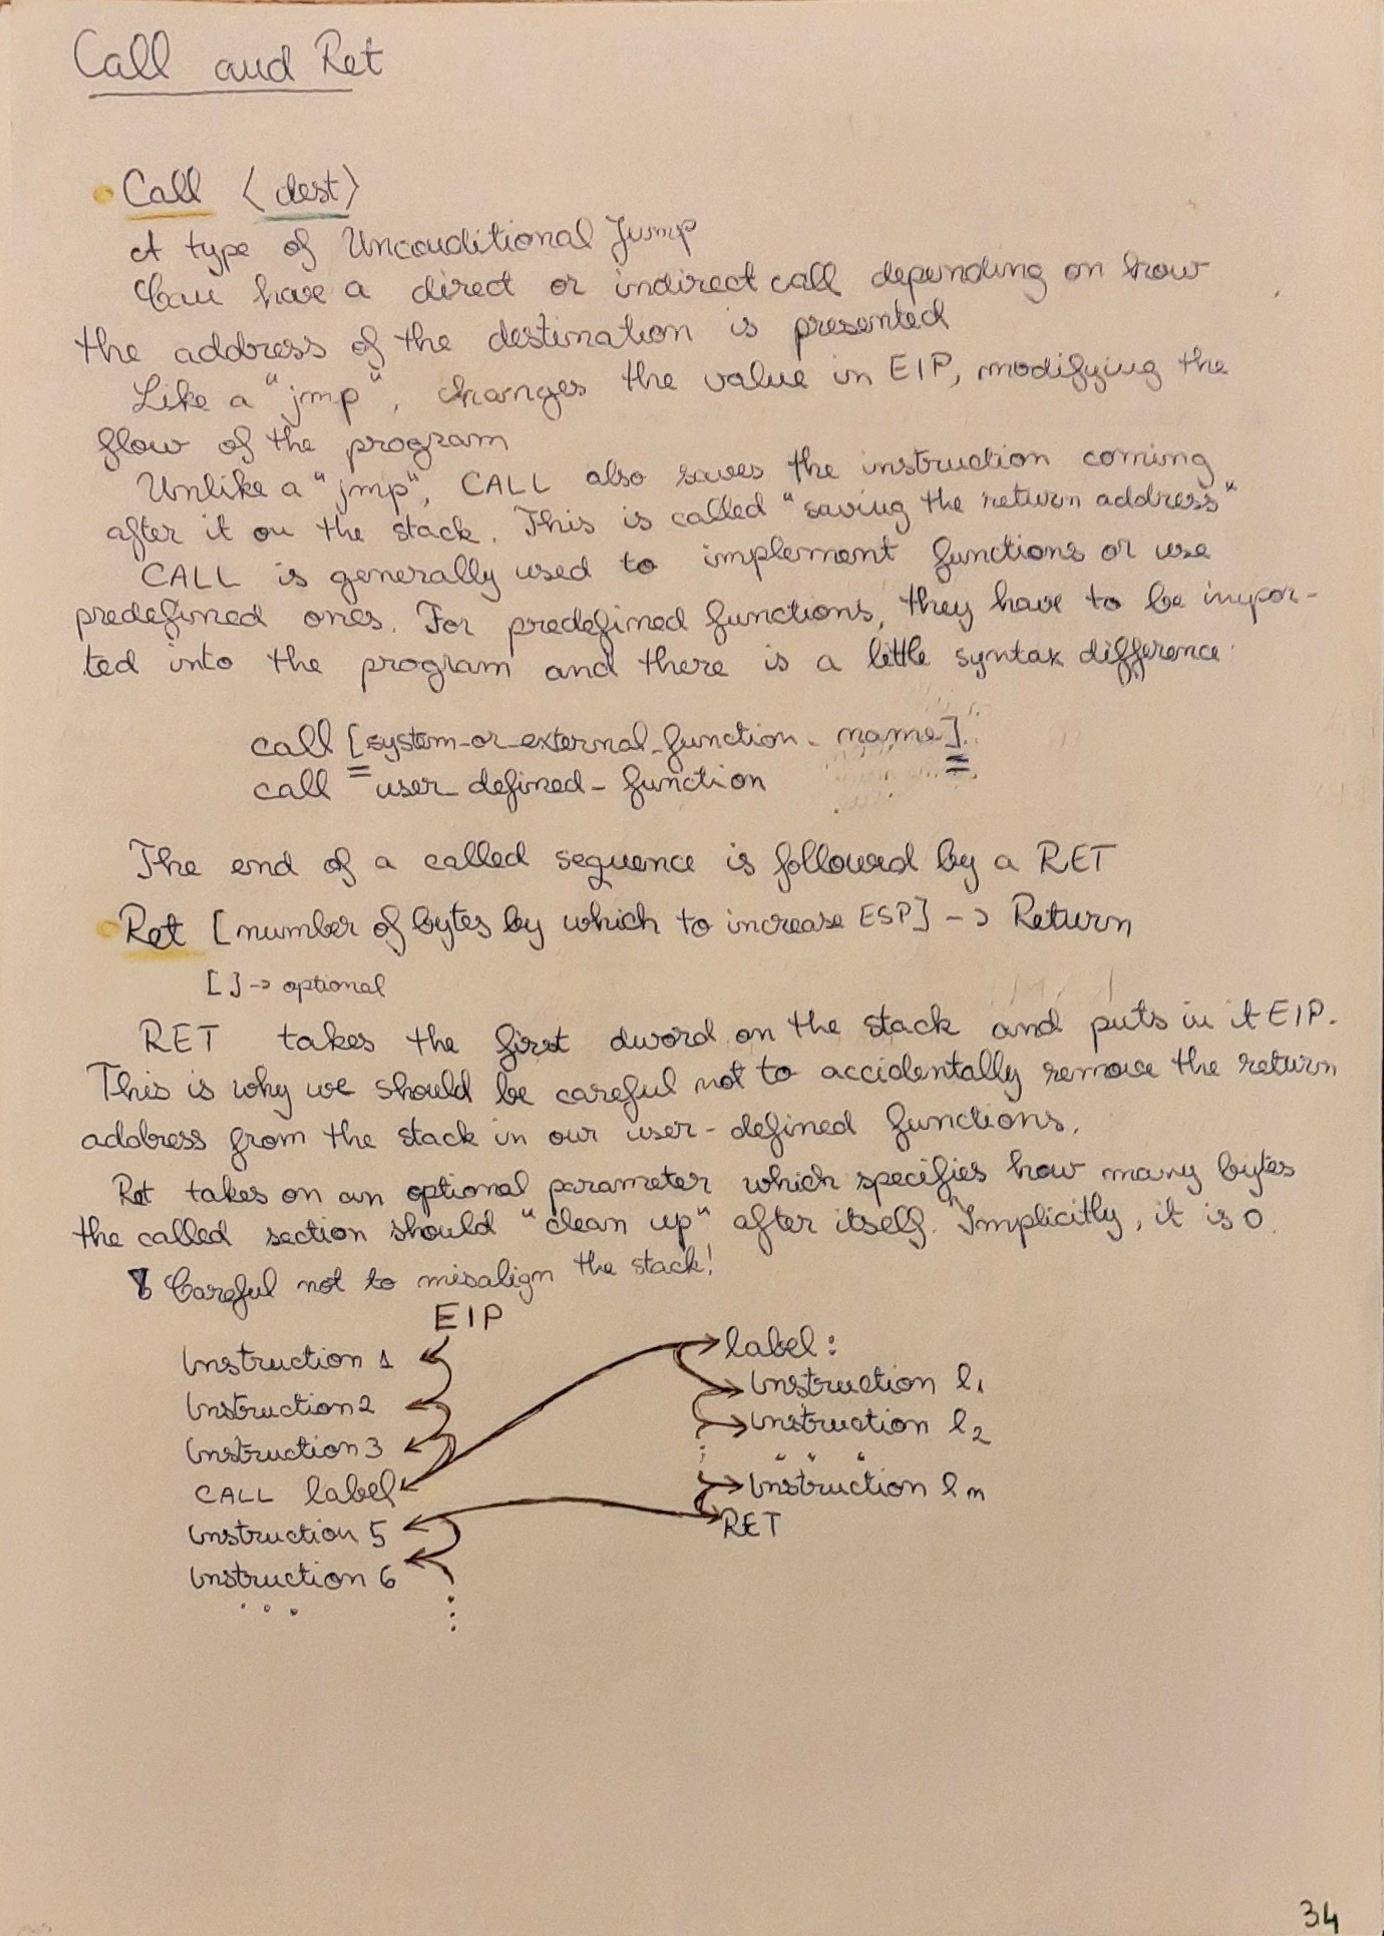 Call and Ret
• Call <dest>
A type of Unconditional Jump
Can have a direct or indirect call depending on how
the address of the destination is presented
Like a "jmp", changes the value in EIP, modifying the
flow of the program
Unlike a "jmp", CALL also saves the instruction coming
after it on the stack. This is called "saving the return address"
CALL is generally used to implement functions or use
predefined ones. For predefined functions, they have to be impor-
ted into the program and there is a little syntax difference:
call [system_or_external_function_name]
call user_defined_function
The end of a called sequence is followed by a RET
• Ret [number of bytes by which to increase ESP] -> Return
[] -> optional
RET takes the first dword on the stack and puts in it EIP.
This is why we should be careful not to accidentally remove the return
address from the stack in our user-defined functions.
Ret takes on an optional parameter which specifies how many bytes
the called section should "clean up" after itself. Implicitly, it is 0.
Careful not to misalign the stack!
EIP
Instruction 1
Instruction 2
Instruction 3
CALL label
Instruction 5
Instruction 6
...
label:
Instruction l1
Instruction l2
...
Instruction lm
RET
34